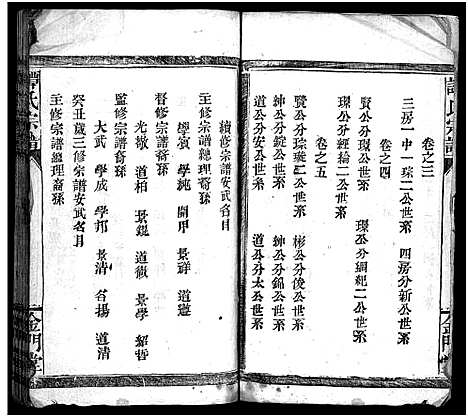 譚氏宗譜
卷之三
三房一中一琮二公世系 四房分新公世系
卷之四
賢公分琮公世系 琛公分綱紀二公世系
琛公分經綸二公世系
卷之五
賢公分琮璣二公世系 彬公分俊公世系
紳公分錠公世系 紳公分錦公世系
道公分安公世系 道公分太公世系
金門堂
續修宗譜安武名目
主修宗譜總理裔孫
學賓 學純 開甲 景祥 道憲
督修宗譜裔孫
光撤 道柏 景鑑 道徽 景學 紹哲
監修宗譜裔孫
大武 學成 學邦 景清 名揚 道清
癸丑歲三修宗譜安武名目
主修宗譜總理裔孫
譚氏宗譜
金門堂